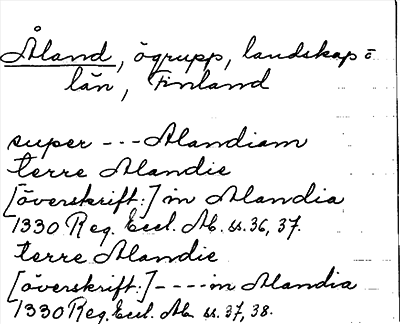 Åland, ögrupp, landskap =
län, Finland
super --- Alandiam
terre Alandie
[överskrift:] in Alandia
1330 Reg. Eccl. Ab. ss. 36, 37.
terre Alandie
[överskrift:] ---- in Alandia
1330 Reg. Eccl. Ab. ss. 37, 38.